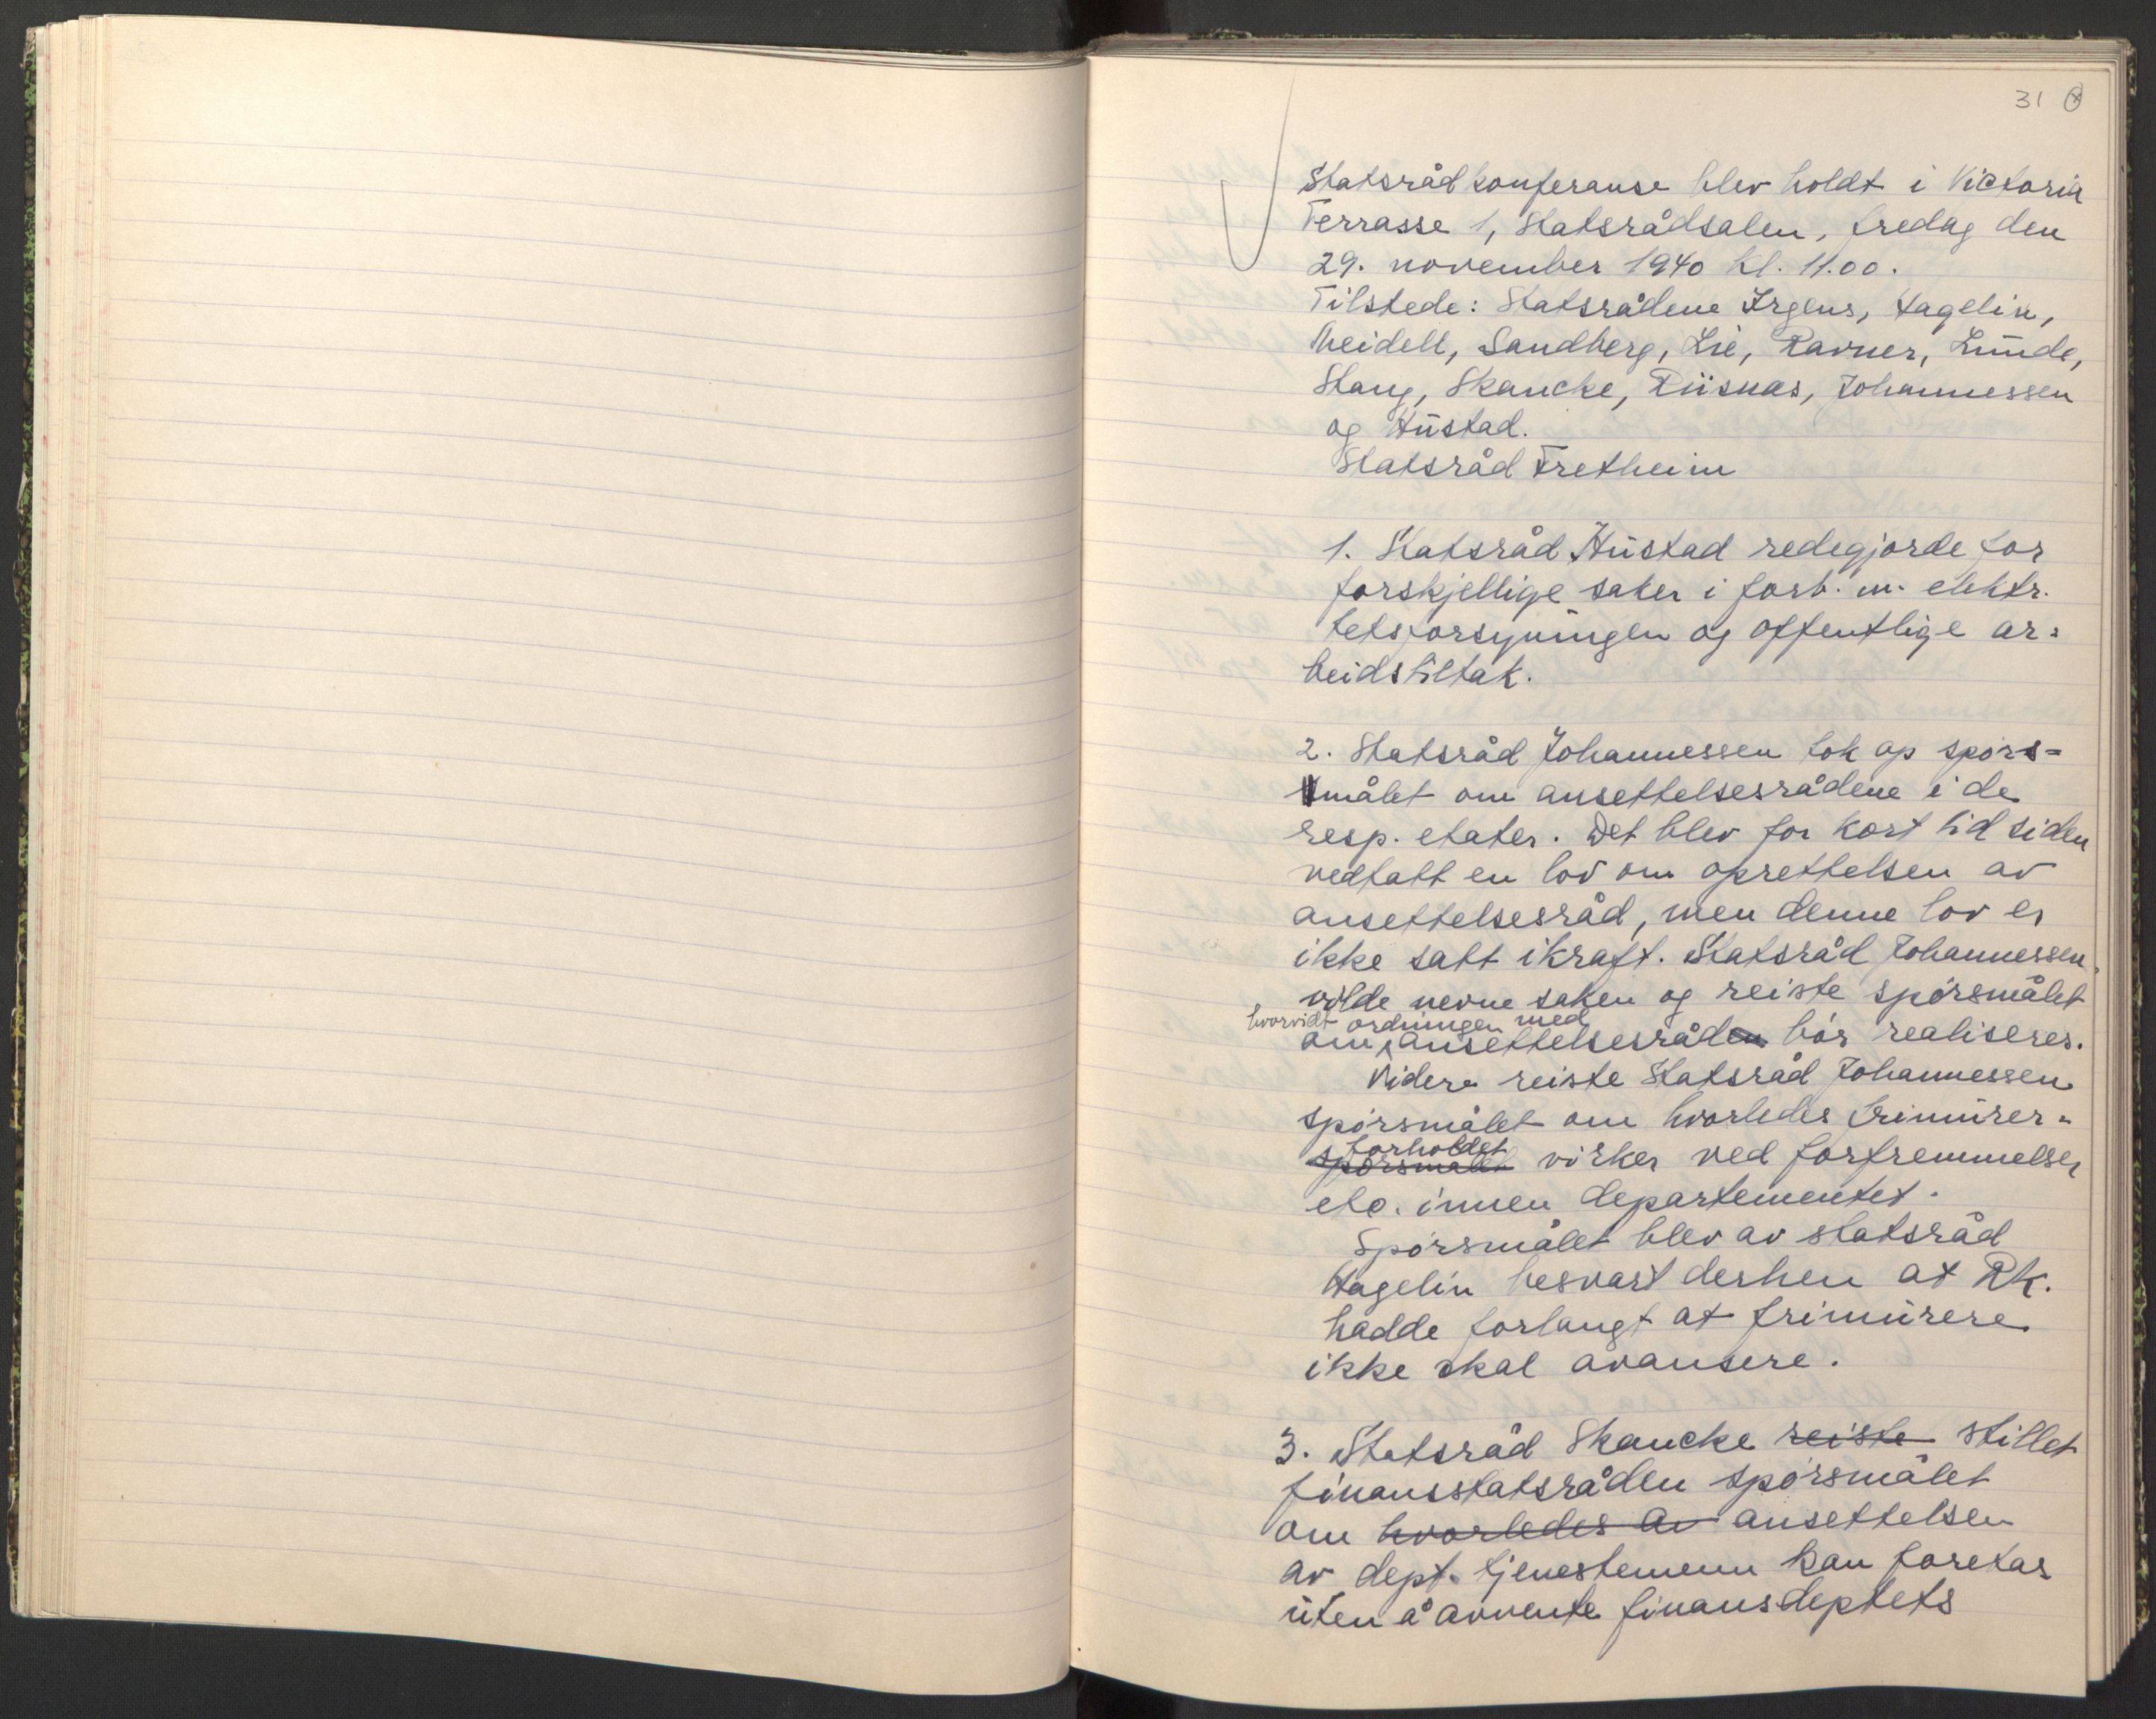 31
Statsrådkonferanse blev holdt i Victoria
Terrasse 1, Statsrådsalen, fredag den
29. november 1940 kl. 11.00.
Tilstede: Statsrådene Irgens, Hagelin,
Meidell, Sandberg, Lie, Ravner, Lunde,
Stang, Skancke, Riisnæs, Johannessen
og Hustad.
Statsråd Fretheim
1. Statsråd Hustad redegjorde for
forskjellige saker i forb. m. elektr.
tetsforsyningen og offentlige ar=
beidstiltak.
2. Statsråd Johannessen tok op spørs=
målet om ansettelsesrådene i de
resp. etater. Det blev for kort tid siden
vedtatt en lov om oprettelsen av
ansettelsesråd, men denne lov er
ikke satt ikraft. Statsråd Johannessen
vilde nevne saken og reiste spørsmålet
hvorvidt ordningen med
om ansettelsesråden bør realiseres.
Videre reiste Statsråd Johannessen
spørsmålet om hvorledes frimurer=
forholdet
spørsmålet virker ved forfremmelser
etc. innen departementet.
Spørsmålet blev av statsråd
Hagelin besvart derhen at Rk.
hadde forlangt at frimurere
ikke skal avansere.
3. Statsråd Skancke reiste stillet
finansstatsråden spørsmålet
om hvorledes av ansettelsen
av dept. tjenestemenn kan foretas
uten å avvente finansdeptets